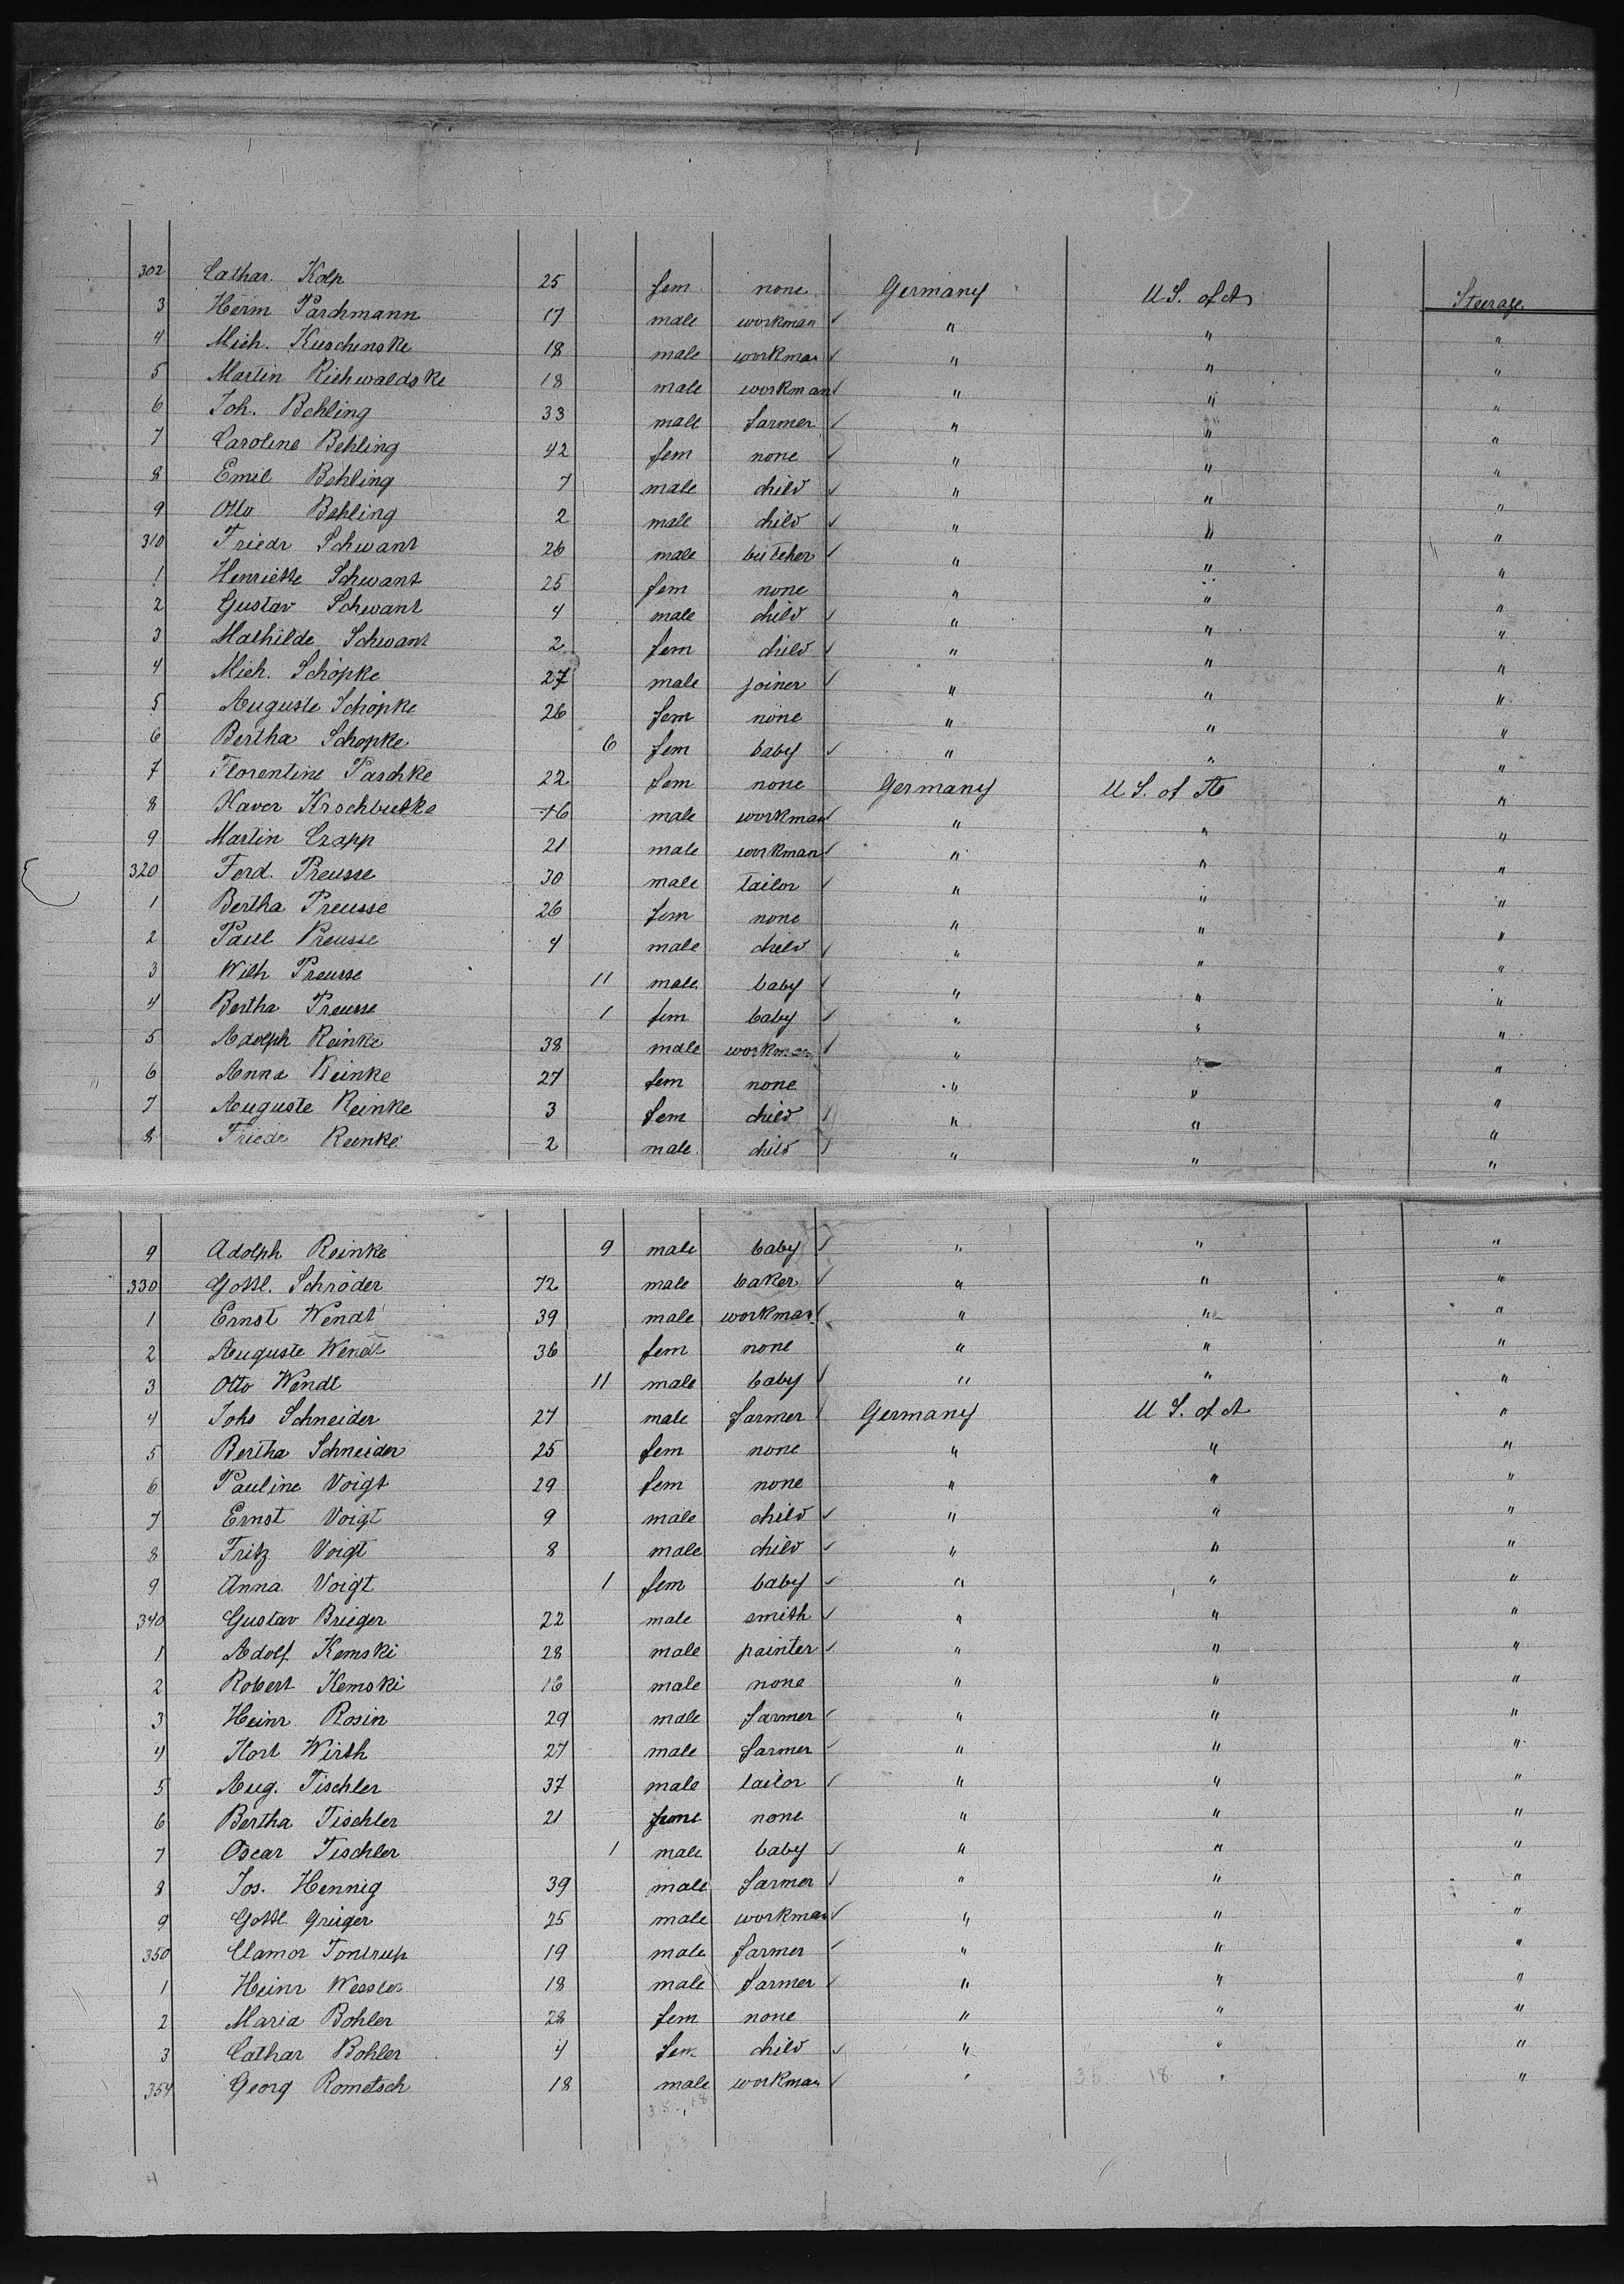 302 Cathar. Kolp 25 fem. none Germany U S. of A Steerage
3 Herm Parchmann 17 male workman ✓ " " "
4 Mich. Kuschinske 18 male workman ✓ " " "
5 Martin Richwaldske 18 male workman ✓ " " "
6 Joh. Behling 33 male farmer ✓ " " "
7 Caroline Behling 42 fem none ✓ " " "
8 Emil Behling 7 male child ✓ " " "
9 Otto Behling 2 male child ✓ " " "
310 Friedr Schwant 26 male butcher ✓ " " "
1 Henriette Schwant 25 fem none " " "
2 Gustav Schwant 4 male child ✓ " " "
3 Mathilde Schwant 2 fem child ✓ " " "
4 Mich. Schöpke 27 male joiner ✓ " " "
5 Auguste Schöpke 26 fem none " " "
6 Bertha Schopke 6 fem baby ✓ " " "
7 Florentine Paschke 22 fem none Germany U S. of A "
8 Xaver Krschbutke 16 male workman ✓ " " "
9 Martin Czapp 21 male workman ✓ " " "
320 Ferd. Preusse 30 male tailor ✓ " " "
1 Bertha Preusse 26 fem none " " "
2 Paul Preusse 4 male child ✓ " " "
3 Wilh Preusse 11 male baby ✓ " " "
4 Bertha Preusse 1 fem baby ✓ " " "
5 Adolph Reinke 38 male workman ✓ " " "
6 Anna Reinke 27 fem none " " "
7 Auguste Reinke 3 fem child ✓ " " "
8 Friedr Reinke 2 male child ✓ " " "
9 Adolph Reinke 9 male baby ✓ " " "
330 Gottl. Schröder 72 male baker ✓ " " "
1 Ernst Wendt 39 male workman ✓ " " "
2 Auguste Wendt 36 fem none " " "
3 Otto Wendt 11 male baby ✓ " " "
4 Johs Schneider 27 male farmer ✓ Germany U S. of A "
5 Bertha Schneider 25 fem none " " "
6 Pauline Voigt 29 fem none " " "
7 Ernst Voigt 9 male child ✓ " " "
8 Fritz Voigt 8 male child ✓ " " "
9 Anna Voigt 1 fem baby ✓ " " "
340 Gustav Brieger 22 male smith ✓ " " "
1 Adolf Kemski 28 male painter ✓ " " "
2 Robert Kemski 16 male none " " "
3 Heinr Rosin 29 male farmer ✓ " " "
4 Wirth 27 male farmer ✓ " " "
5 Aug. Tischler 37 male tailor ✓ " " "
6 Bertha Tischler 21 none " " "
7 Oscar Tischler 1 male baby ✓ " " "
8 Jos. Hennig 39 male farmer ✓ " " "
9 Gottl Grüger 25 male workman ✓ " " "
350 Clamor Tontrup 19 male farmer ✓ " " "
1 Heinr Wessler 18 male farmer ✓ " " "
2 Maria Bohler 28 fem none " " "
3 Cathar Bohler 4 fem child ✓ " " "
354 Georg Rometsch 18 male workman ✓ " 35 18 " "